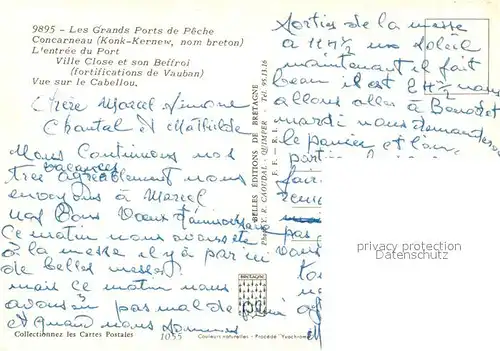 9895 - Les Grands Ports de Pêche
Concarneau (Konk-Kernew, nom breton)
L'entrée du Port
Ville Close et son Beffroi
(fortifications de Vauban)
Vue sur le Cabellou.
Chère Marcel Simone
Chantal et Mathilde
Nous Continuons nos
vacances
très agréablement nous
envoyons à Marcel
nos Bons Voeux d'anniversaire
Ce matin nous avons été
à la messe il y a par ici
de belles messes
mais ce matin nous
avons eu pas mal de pluie
et quand nous sommes
Sorties de la messe
à 11 H ½ un soleil
maintenant il fait
beau il est 2 H ½ nous
allons aller à Benodet
mardi nous demanderons
le panier et l'on
faire
pas
vous
BELLES ÉDITIONS DE BRETAGNE
Photo Y. R. CAOUDAL, QUIMPER - Tél. 95.13.16
F. F. - R. L.
BRETAGNE
privacy protection
by DELCAMPE
Collectionnez les Cartes Postales
1055
Couleurs naturelles - Procédé "Yvochrome